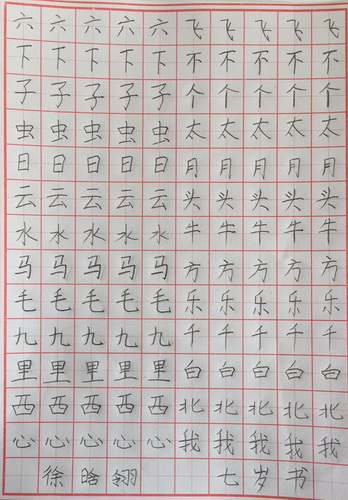 六六六六六飞飞飞飞飞
下下下下下不不不不不
子子子子子个个个个个
虫虫虫虫虫太太太太太
日日日日日月月月月月
云云云云云头头头头头
水水水水水牛牛牛牛牛
马马马马马方方方方方
毛毛毛毛毛乐乐乐乐乐
九九九九九千千千千千
里里里里里白白白白白
西西西西西北北北北北
心心心心心我我我我我
徐晗翎 七岁书